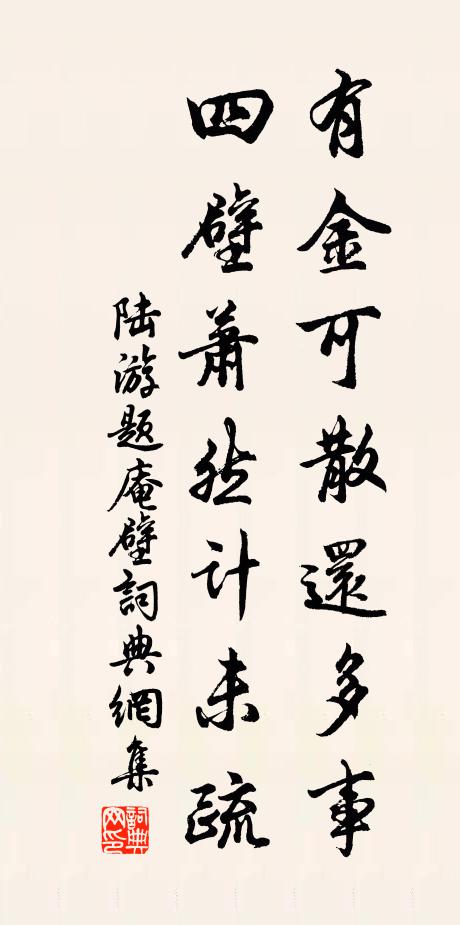 有金可散還多事
四壁蕭然計未疏
陆游题庵壁詞典網集
詞典网印